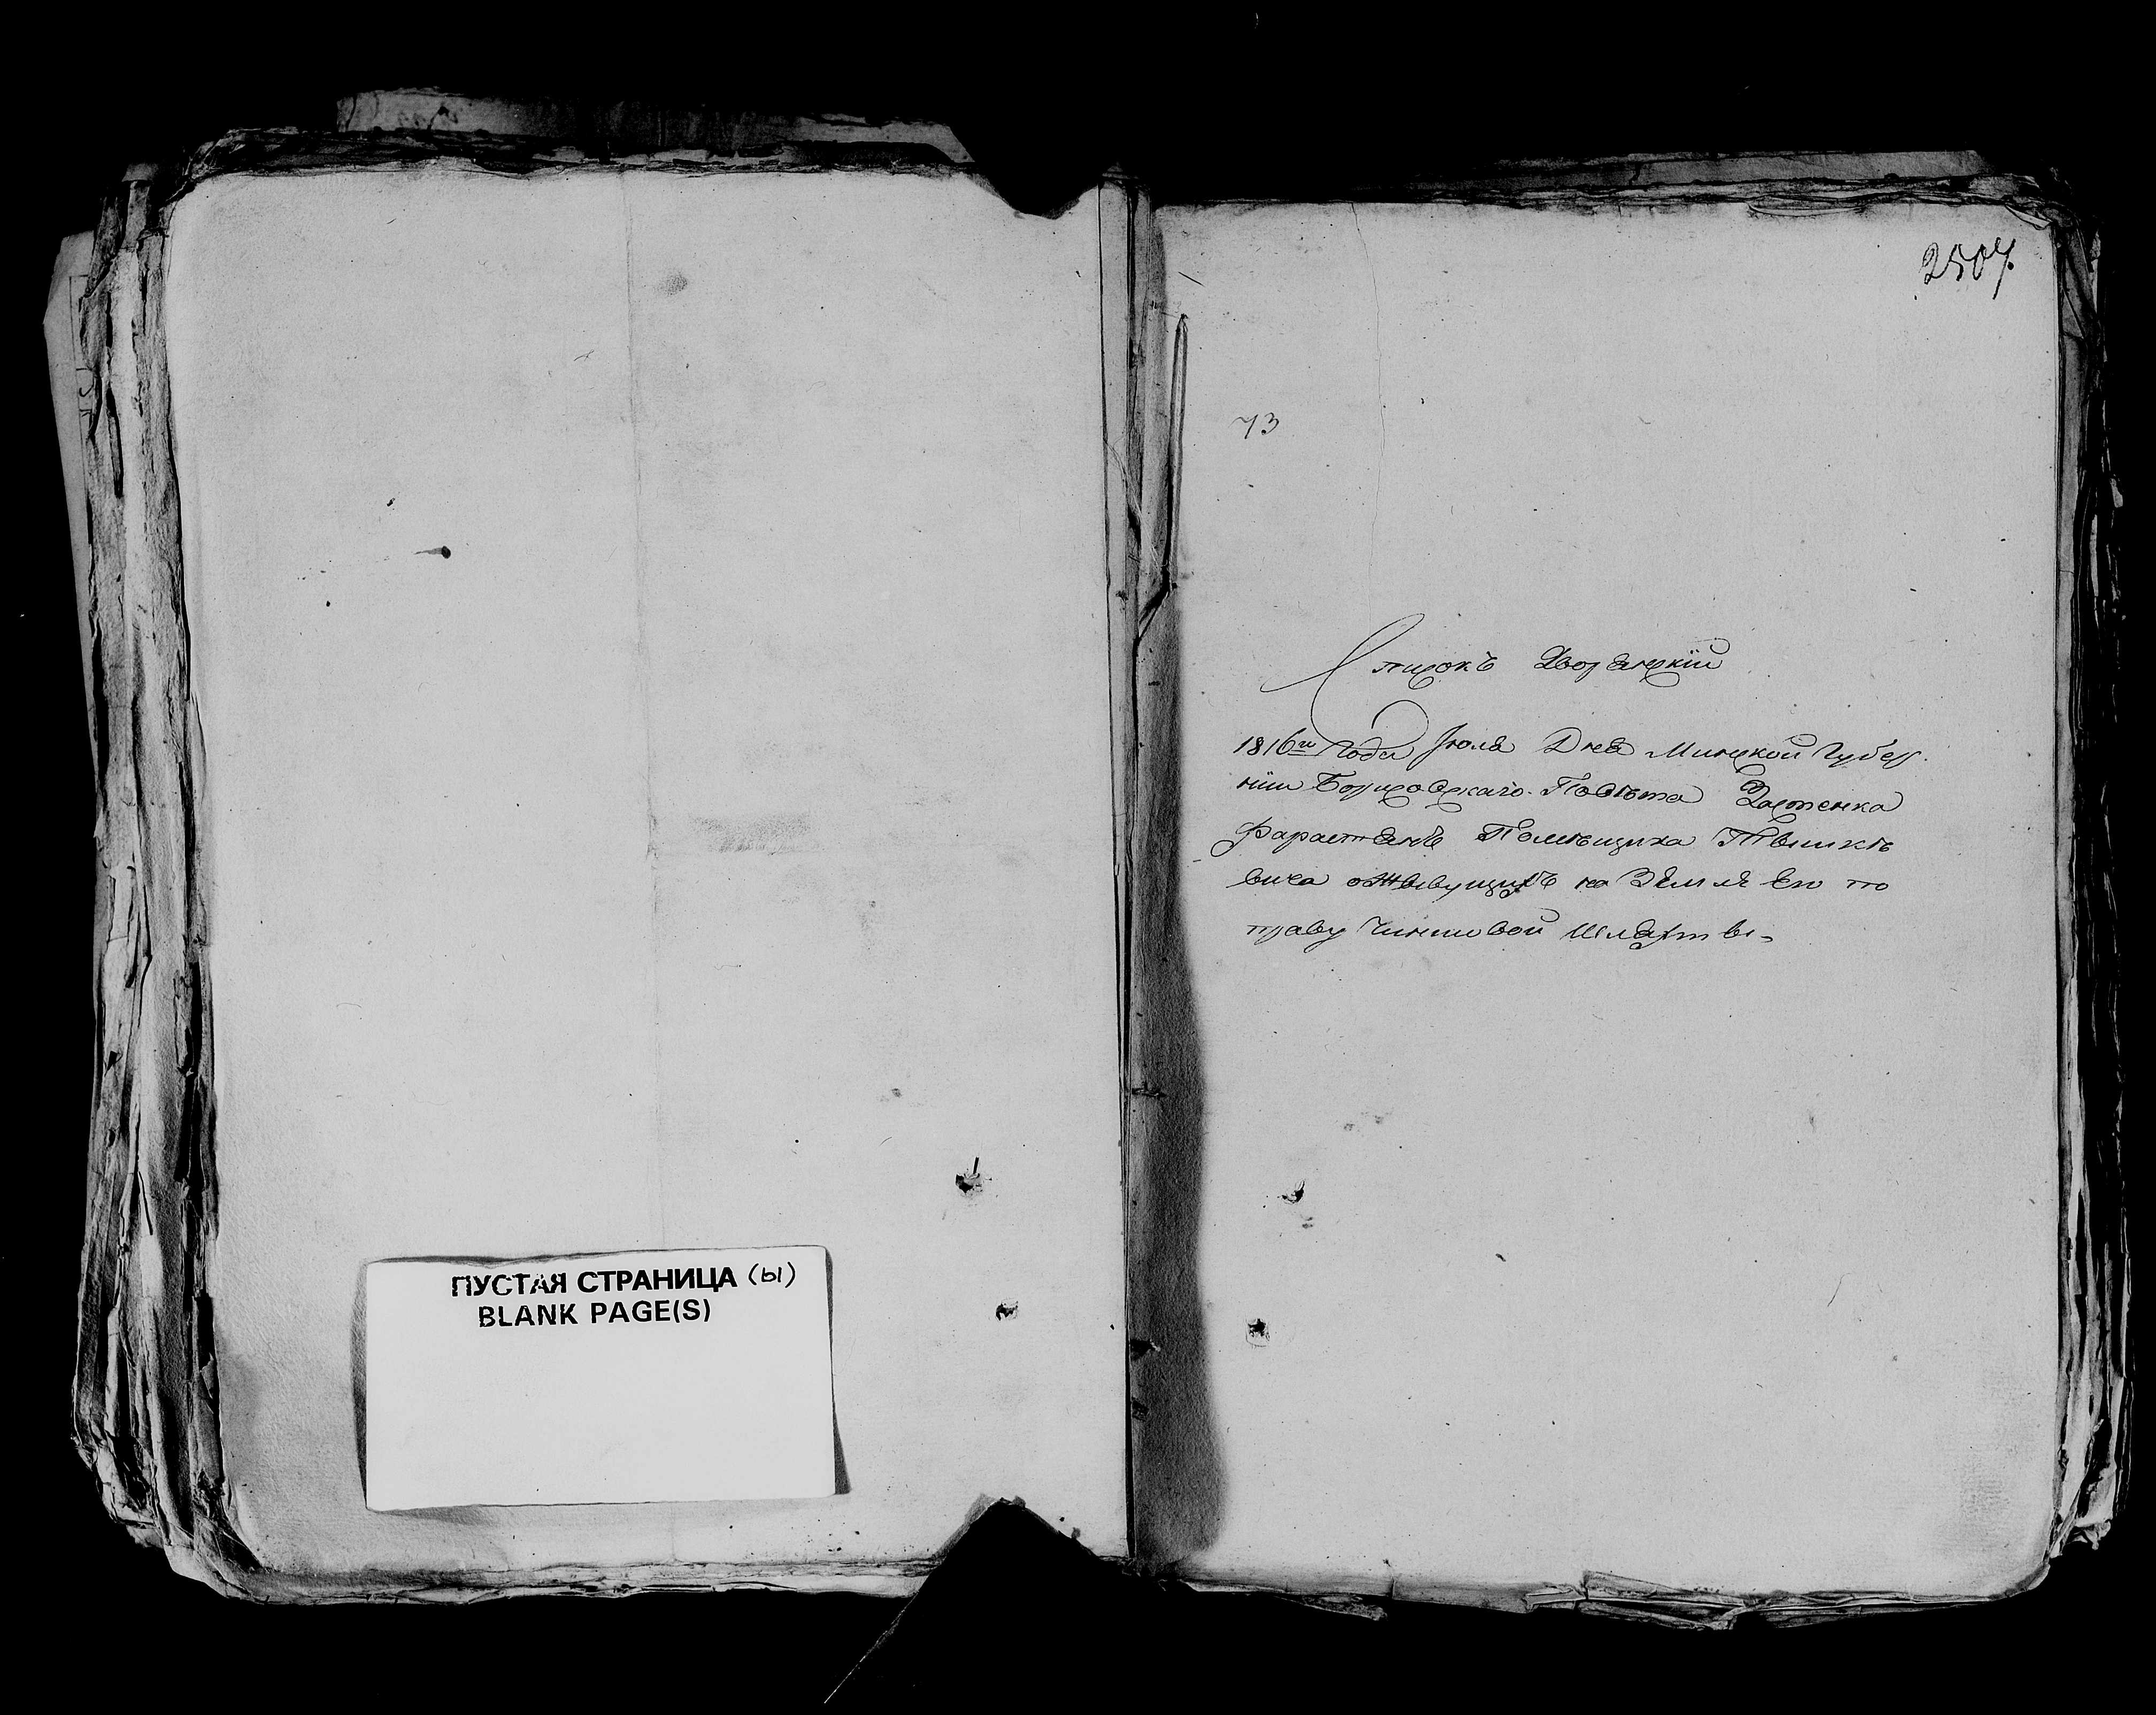 ПУСТАЯ СТРАНИЦА (ы)
BLANK PAGE(S)
2507.
73
Списокъ Дворянскїй
1816го Года Іюля Дня Минской Губер
нїи Борисовскаго Повѣта
Помѣщика Тышкѣ
вича на Земля Его по
праву Чиншовой Шляхты